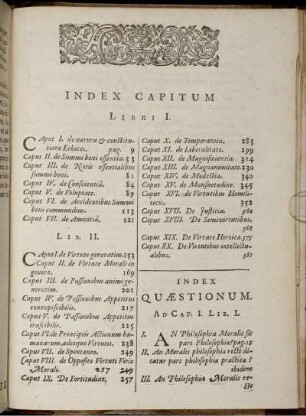 INDEX CAPITUM
LIBRI I.
CApus I. de natura & constitutione Ethices. pag. 9
Caput II. de Summi boni essentia. 33
Caput III. de Notis essentialibus summi boni. 81
Caput IV. de Conscientiâ, 84
Caput V. de Voluptate. 91
Caput VI. de Accidentibus Summi boni communibus. 113
Caput VII. de Amicitiâ, 121
LIB. II.
CAput I. de Virtute generatim. 153
Caput II. de Virtute Morali in genere. 169
Caput III. de Passionibus animi generatim. 201
Caput IV. de Passionibus Appetitus concupiscibilis. 217
Caput V. de Passionibus Appetitus irascibilis. 225
Caput VI. de Principiis Actionum humanarum, adeoque Virtutis. 238
Caput VII. de Spontaneo. 249
Caput VIII. de Opposito Virtuti Vitio Morali. 257
Caput IX. De Fortitudine, 257
Caput X. de Temperantia, 283
Caput XI. de Liberalitate. 299
Caput XII. de Magnificentia. 314
Caput XIII. de Magnanimitate. 230
Caput XIV. de Modestia. 240
Caput XV. de Mansuetudine. 345
Caput XVI. de Virtutibus Homiliticis. 352
Caput XVII. De Justitia. 360
Caput XVIII. De Semivirtutibus. 365
Caput XIX. De Virtute Heroica. 375
Caput XX. De Virtutibus intellectualibus. 381
INDEX
QUÆSTIONUM.
AD CAP. I. LIB. I.
I. AN Philosophia Moralis sit pars Philosophiæ? pag. 12
II. An Moralis philosophia recte dicatur pars philosophiæ practica? ibidem
III. An Philosophia Moralis re-